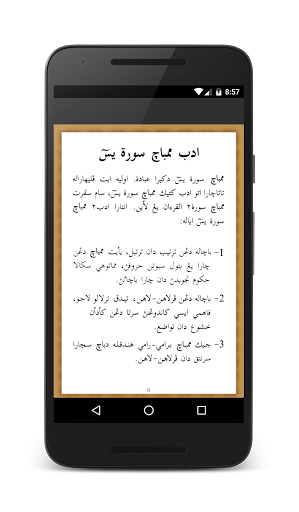 8:57
ادب ممباچ سورة يسٓ
ممباچ سورة يسٓ دكيرا عبادة. اوليه ايت ڤليهاراله
تاتاچارا اتو ادب كتيك ممباچ سورة يسٓ، سام سڤرت
ممباچ سورة٢ القرءان يڠ لأين. انتارا ادب٢ ممباچ
سورة يسٓ اياله:
1- باچاله دڠن ترتيب دان ترتيل، يأيت ممباچ دڠن
چارا يڠ بتول سبوتن حروفڽ، مماتوهي سڬالا
حكوم تجويدڽ دان چارا باچأنڽ.
2- باچاله دڠن ڤرلاهن-لاهن، تيدق ترلالو لاجو،
فاهمي ايسي كاندوڠنڽ سرتا دڠن كأدأن
خشوع دان تواضع.
3- جيك ممباچ برامي-رامي هندقله دباچ سچارا
سرنتق دان ڤرلاهن-لاهن.